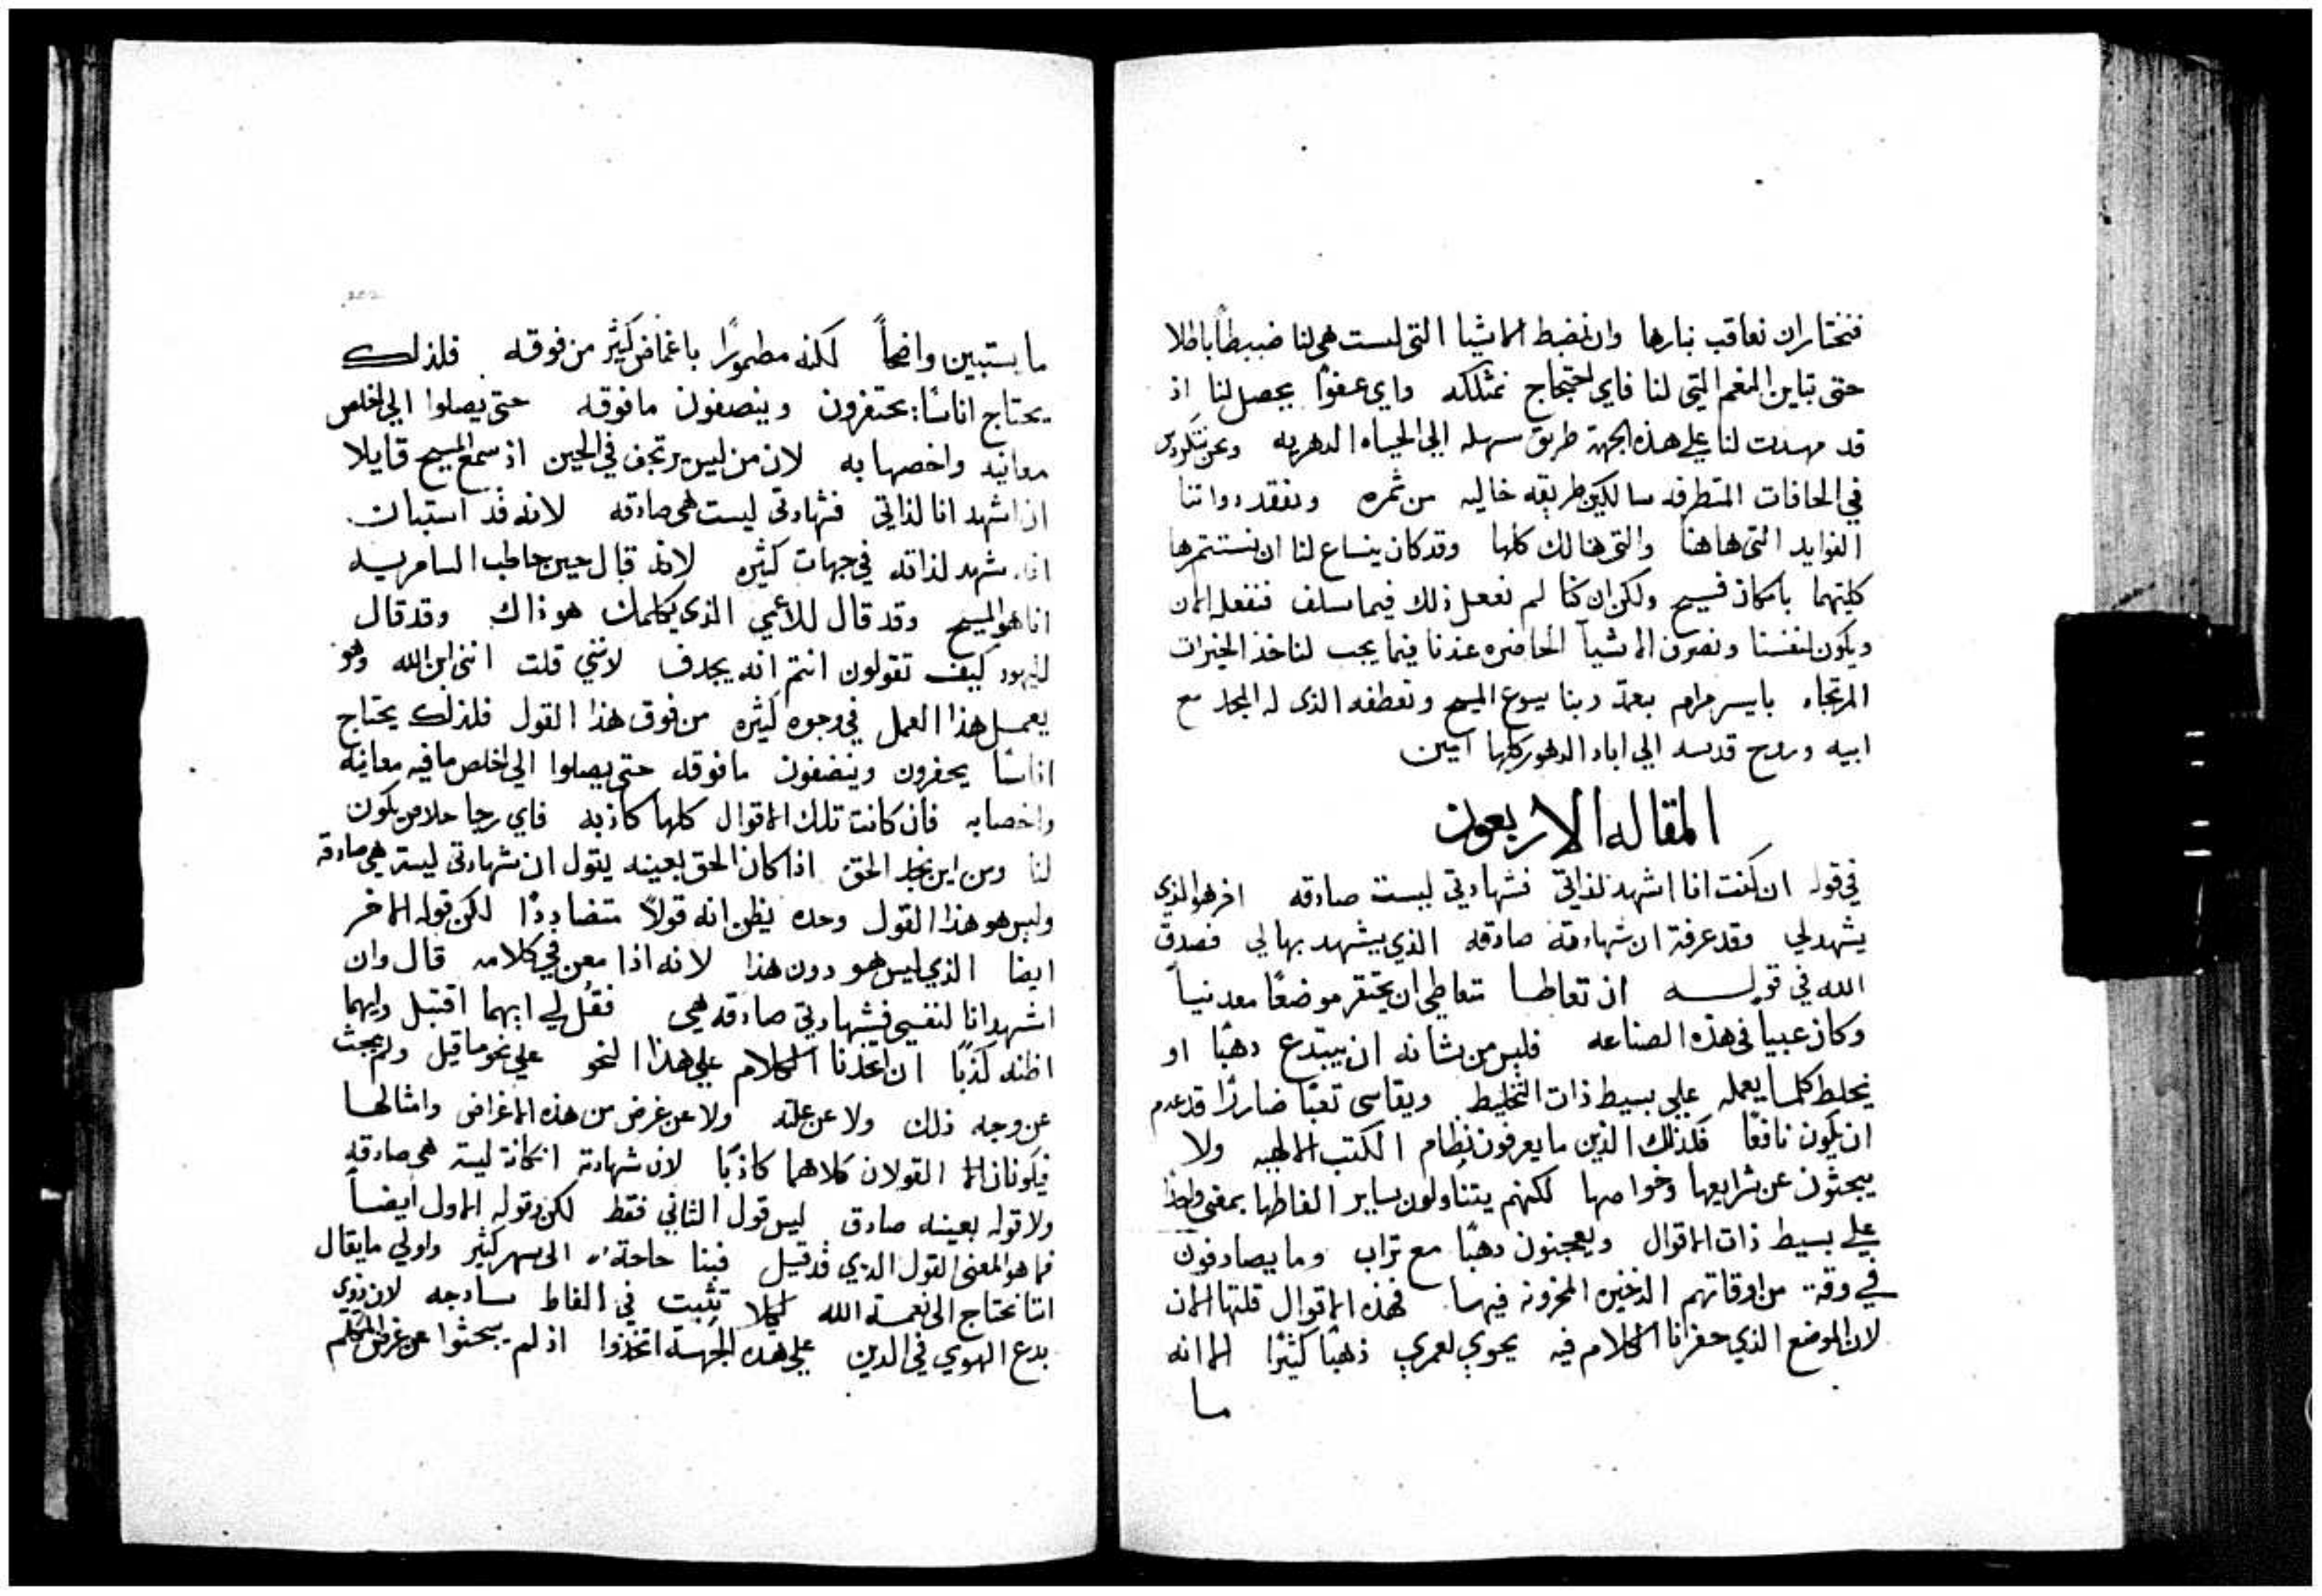 فنختار ان نعاقب بنارها وان نضبط الاشيا التي ليست هي لنا ضبطاً باطلا
حتى تباين النعم التي لنا فاي احتجاج نمتلكه واي عفوًا يحصل لنا اذ
قد مهدت لنا علي هذه الجهة طريق سهله الي الحياه الدهريه ونحن
في الحافات المتطرفه سالكين طريقه خاليه من ثمره ونفقد ذواتنا
الفوايد التي هاهنا والتي هنالك كلها وقد كان ينساغ لنا ان نستثمرها
كلتيهما بامكان فسيح ولكن ان كنا لم نفعل ذلك فيما سلف فنفعله الان
ونكون لنفسنا ونصرف الاشيآ الحاضره عندنا فيما يجب لناخذ الخيرات
المرتجاه بايسر مرام بنعمة ربنا يسوع المسيح وتعطفه الذي له المجد مع
ابيه وروح قدسه الي اباد الدهور كلها امين
المقاله الاربعون
في قوله ان كنت انا اشهد لذاتي فشهادتي ليست صادقه اخر هو الذي
يشهد لي وقد عرفة ان شهادته صادقه الذي يشهد بها لي فصدق
الله في قوله ان تعاطا متعاطي ان يحتفر موضعًا معدنياً
وكان غبياً في هذه الصناعه فليس من شانه ان يبتدع دهبًا او
يخلط كلما يعمله علي بسيط ذات التخليط ويقاسي تعبًا ضارًا قد عدم
ان يكون نافعًا فكذلك الذين ما يعرفون نظام الكتب الالهيه ولا
يبحثون عن شرايعها وخواصها لكنهم يتناولون ساير الفاظها بمعني واحدًا
علي بسيط ذات الاقوال ويعجنون دهبًا مع تراب وما يصادفون
في وقة من اوقاتهم الدخيره المخزونه فيها فهذه الاقوال قلتها الان
لان الموضع الذي حفرنا الكلام فيه يحوي لعمري ذهبًا كثيرًا الا انه
ما
ما يستبين واضحاً لكنه مطمورًا باغماض كثير من فوقه فلذلك
يحتاج اناسًا يحتفرون وينصفون ما فوقه حتى يصلوا الي اخلص
معانيه واخصها به لان من ليس يرتجف في الحين اذ سمع المسيح قايلا
ان اشهد انا لذاتي فشهادتي ليست هي صادقه لانه قد استبان
انه شهد لذاته في جهات كثيره لانه قال حين خاطب السامريه
انا هو المسيح وقد قال للاعمي الذي يكلمك هو ذاك وقد قال
لليهود كيف تقولون انتم انه يجدف لانني قلت انني ابن الله وهو
يعمل هذا العمل في وجوه كثيره من فوق هذا القول فلذلك يحتاج
اناسًا يحفرون وينضفون ما فوقه حتى يصلوا الي اخلص ما فيه معانيه
واخصا به فان كانت تلك الاقوال كلها كاذبه فاي رجا خلاص يكون
لنا ومن اين نجد الحق اذا كان الحق بعينه يقول ان شهادتي ليستر هي صادقه
وليس هو هذا القول وحده يظن انه قولاً متضاددًا لكن قوله الاخر
ايضا الذي ليس هو دون هذا لانه اذا معن في كلامه قال وان
اشهد انا لنفسي فشهادتي صادقه هي فقُل لي ايهما اقتبل وايهما
اظنه كذبًا ان اتخذنا الكلام علي هذا النحو علي نحو ما قيل ولم يبحث
عن وجه ذلك ولا عن علته ولا عن غرض من هذه الاغراض وامثالها
فيكونان القولان كلاهما كاذبًا لان شهادته ان كانة ليسة هي صادقه
ولا قوله بعينه صادق ليس قول الثاني فقط لكن وقوله الاول ايضاً
فما هو المعنى القول الدي قد قيل فبنا حاحة الى سهر كثير واولي ما يقال
اننا نحتاج الى نعمة الله لكيلا نثبت في الفاظ سادجه لان ذوي
بدع الهوي في الدين علي هده الجهة اتخذوا اذ لم يبحثوا عن غرض المتكلم